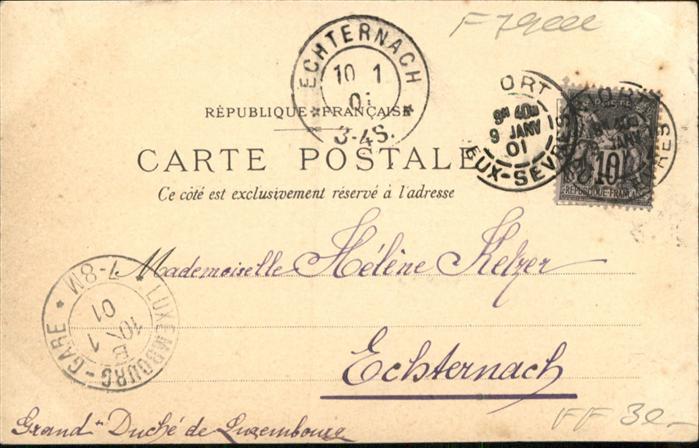 ECHTERNACH
10 1
01
3-4S.
RÉPUBLIQUE FRANÇAISE
CARTE POSTALE
Ce côté est exclusivement réservé à l'adresse
ORT
9 JANV
01
EUX-SÈVRES
10
RÉPUBLIQUE FRANÇ
Mademoiselle Hélène Kelzer
Echternach
Grand Duché de Luxembourg
LUXEMBOURG-GARE
7-8M
10 1
01
FF 30-